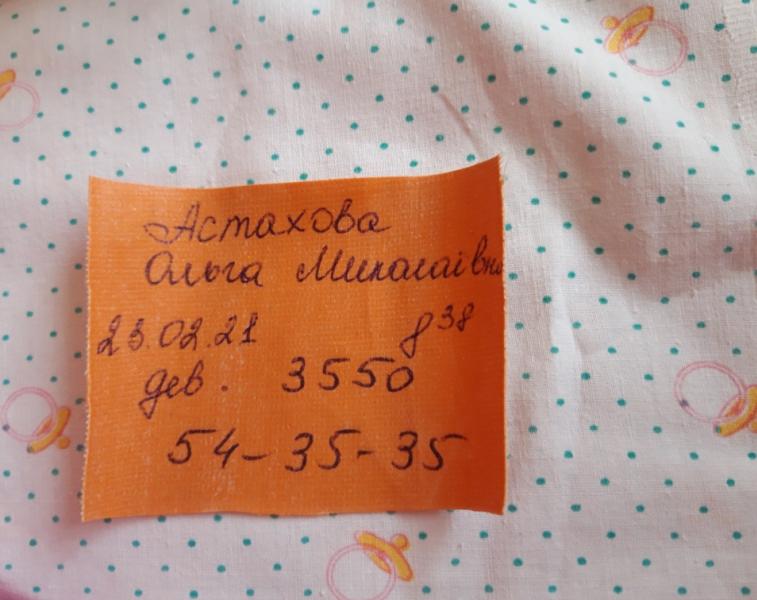 Астахова
Ольга Миколаівна
23.02.21 8³⁸
дев. 3550
54-35-35